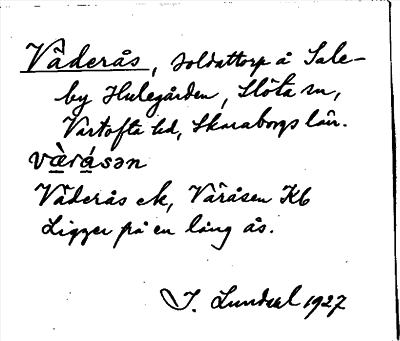 Väderås, soldattorp å Sale-
by Hulegården, Slöta sn,
Vartofta hd, Skaraborgs län.
vàrásən
Väderås ek, Väråsen Kb
Ligger på en lång ås.
J. Lundahl 1927